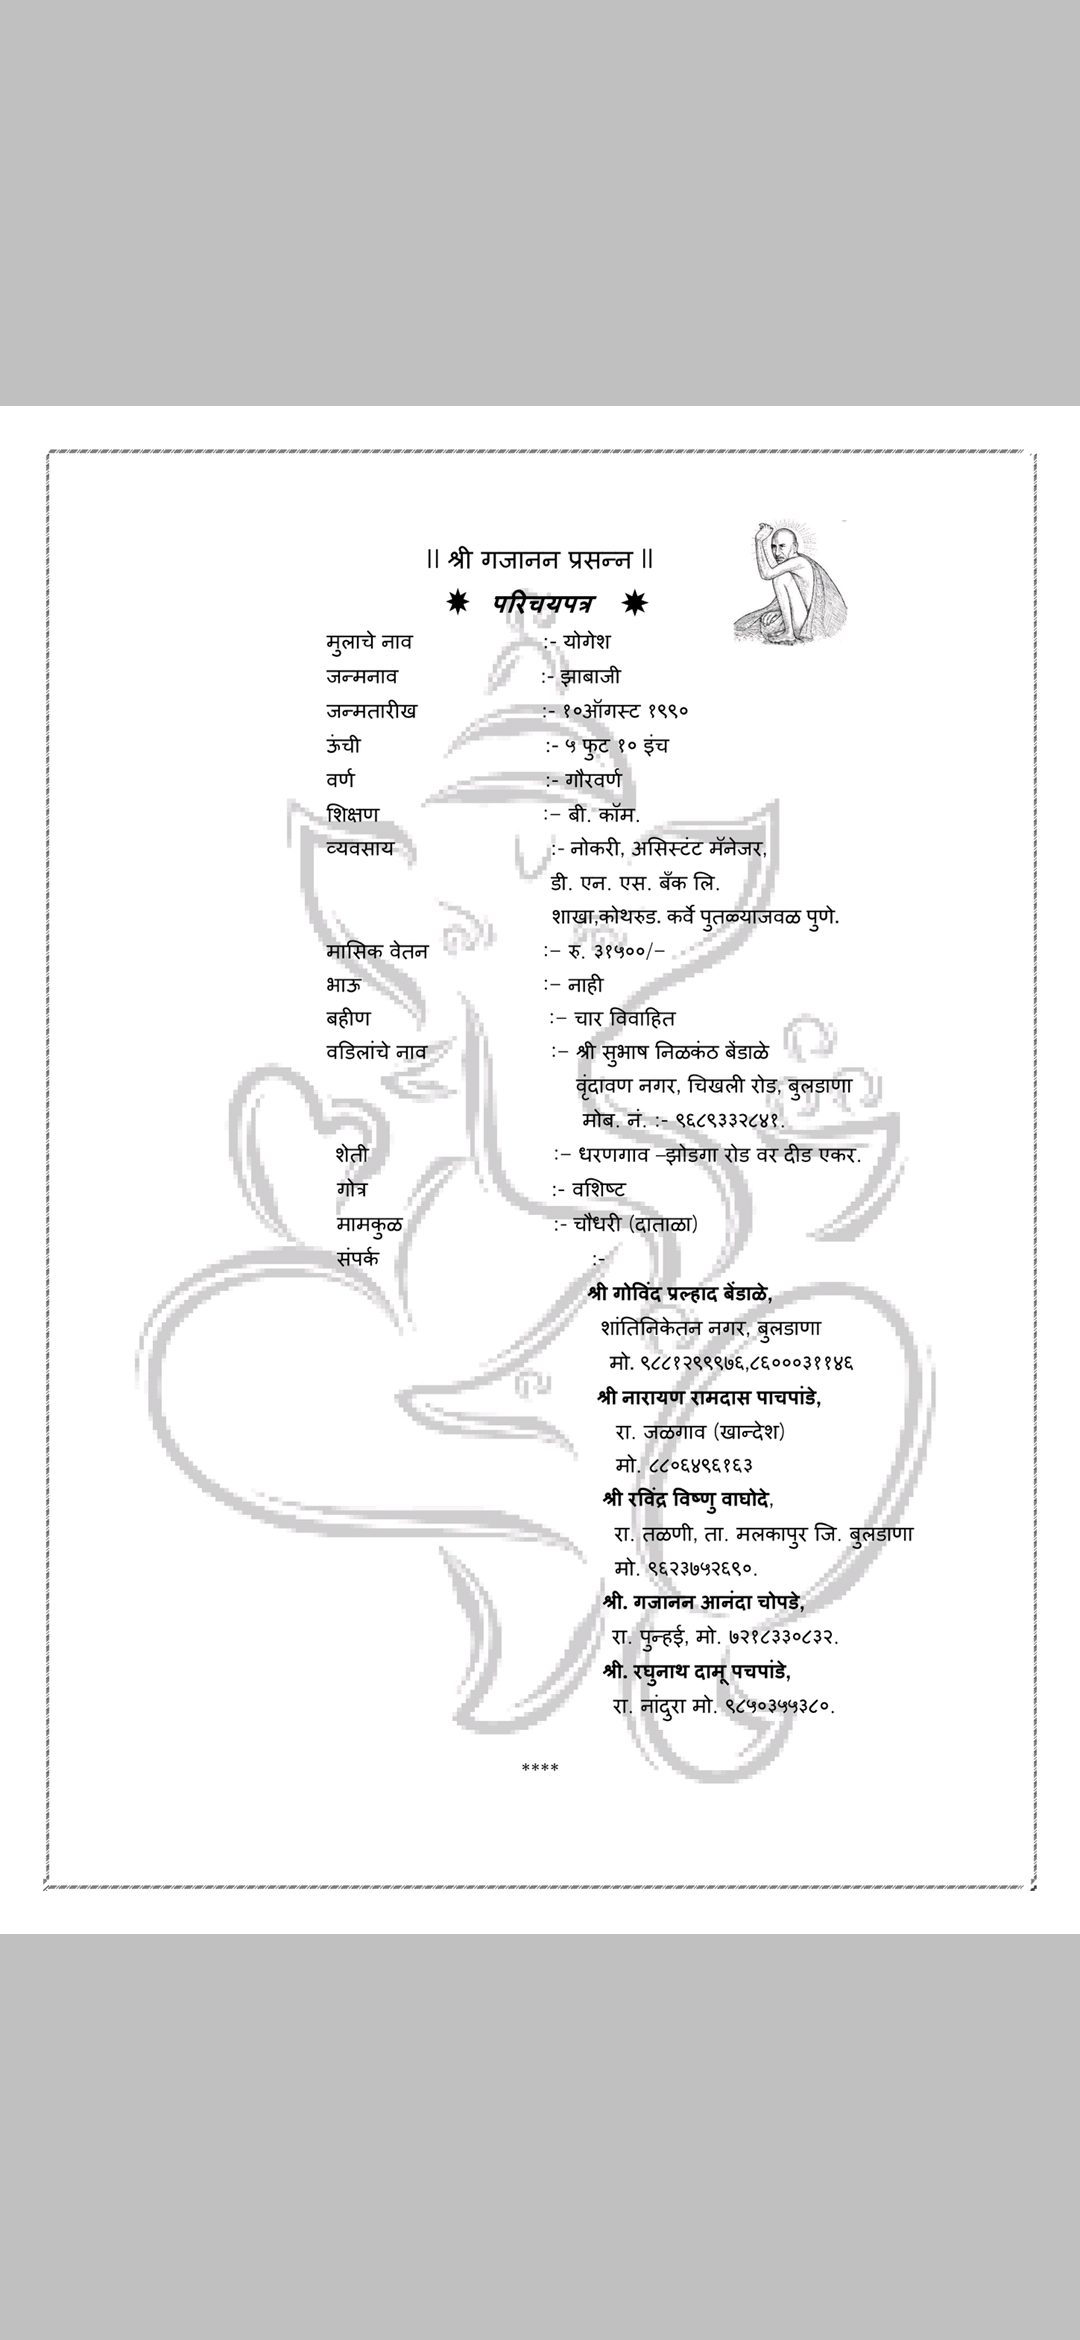 ॥ श्री गजानन प्रसन्न ॥
परिचयपत्र
मुलाचे नाव :- योगेश
जन्मनाव :- झाबाजी
जन्मतारीख :- १०ऑगस्ट १९९०
ऊंची :- ५ फुट १० इंच
वर्ण :- गौरवर्ण
शिक्षण :– बी. कॉम.
व्यवसाय :- नोकरी, असिस्टंट मॅनेजर,
डी. एन. एस. बँक लि.
शाखा,कोथरुड. कर्वे पुतळ्याजवळ पुणे.
मासिक वेतन :– रु. ३१५००/–
भाऊ :– नाही
बहीण :– चार विवाहित
वडिलांचे नाव :– श्री सुभाष निळकंठ बेंडाळे
वृंदावण नगर, चिखली रोड, बुलडाणा
मोब. नं. :- ९६८९३३२८४१.
शेती :– धरणगाव –झोडगा रोड वर दीड एकर.
गोत्र :- वशिष्ट
मामकुळ :- चौधरी (दाताळा)
संपर्क :-
श्री गोविंद प्रल्हाद बेंडाळे,
शांतिनिकेतन नगर, बुलडाणा
मो. ९८८१२९९९७६,८६०००३११४६
श्री नारायण रामदास पाचपांडे,
रा. जळगाव (खान्देश)
मो. ८८०६४९६१६३
श्री रविंद्र विष्णु वाघोदे,
रा. तळणी, ता. मलकापुर जि. बुलडाणा
मो. ९६२३७५२६९०.
श्री. गजानन आनंदा चोपडे,
रा. पुन्हई, मो. ७२१८३३०८३२.
श्री. रघुनाथ दामू पचपांडे,
रा. नांदुरा मो. ९८५०३५५३८०.
****